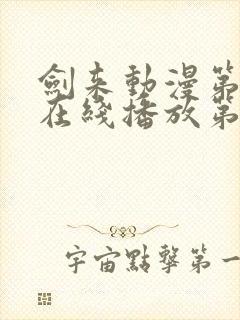 劍来動漫第
在綫播放第
宇宙點擊第一